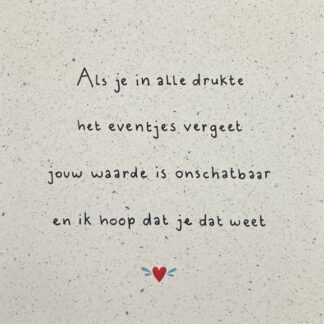 Als je in alle drukte
het eventjes vergeet
jouw waarde is onschatbaar
en ik hoop dat je dat weet